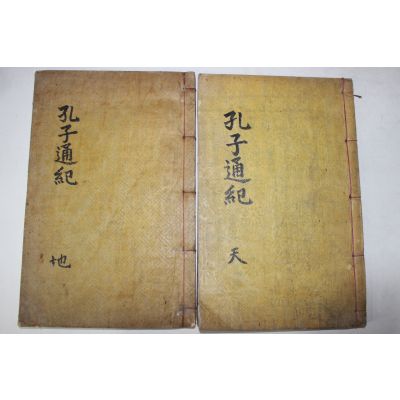 孔子通紀
天
孔子通紀
地